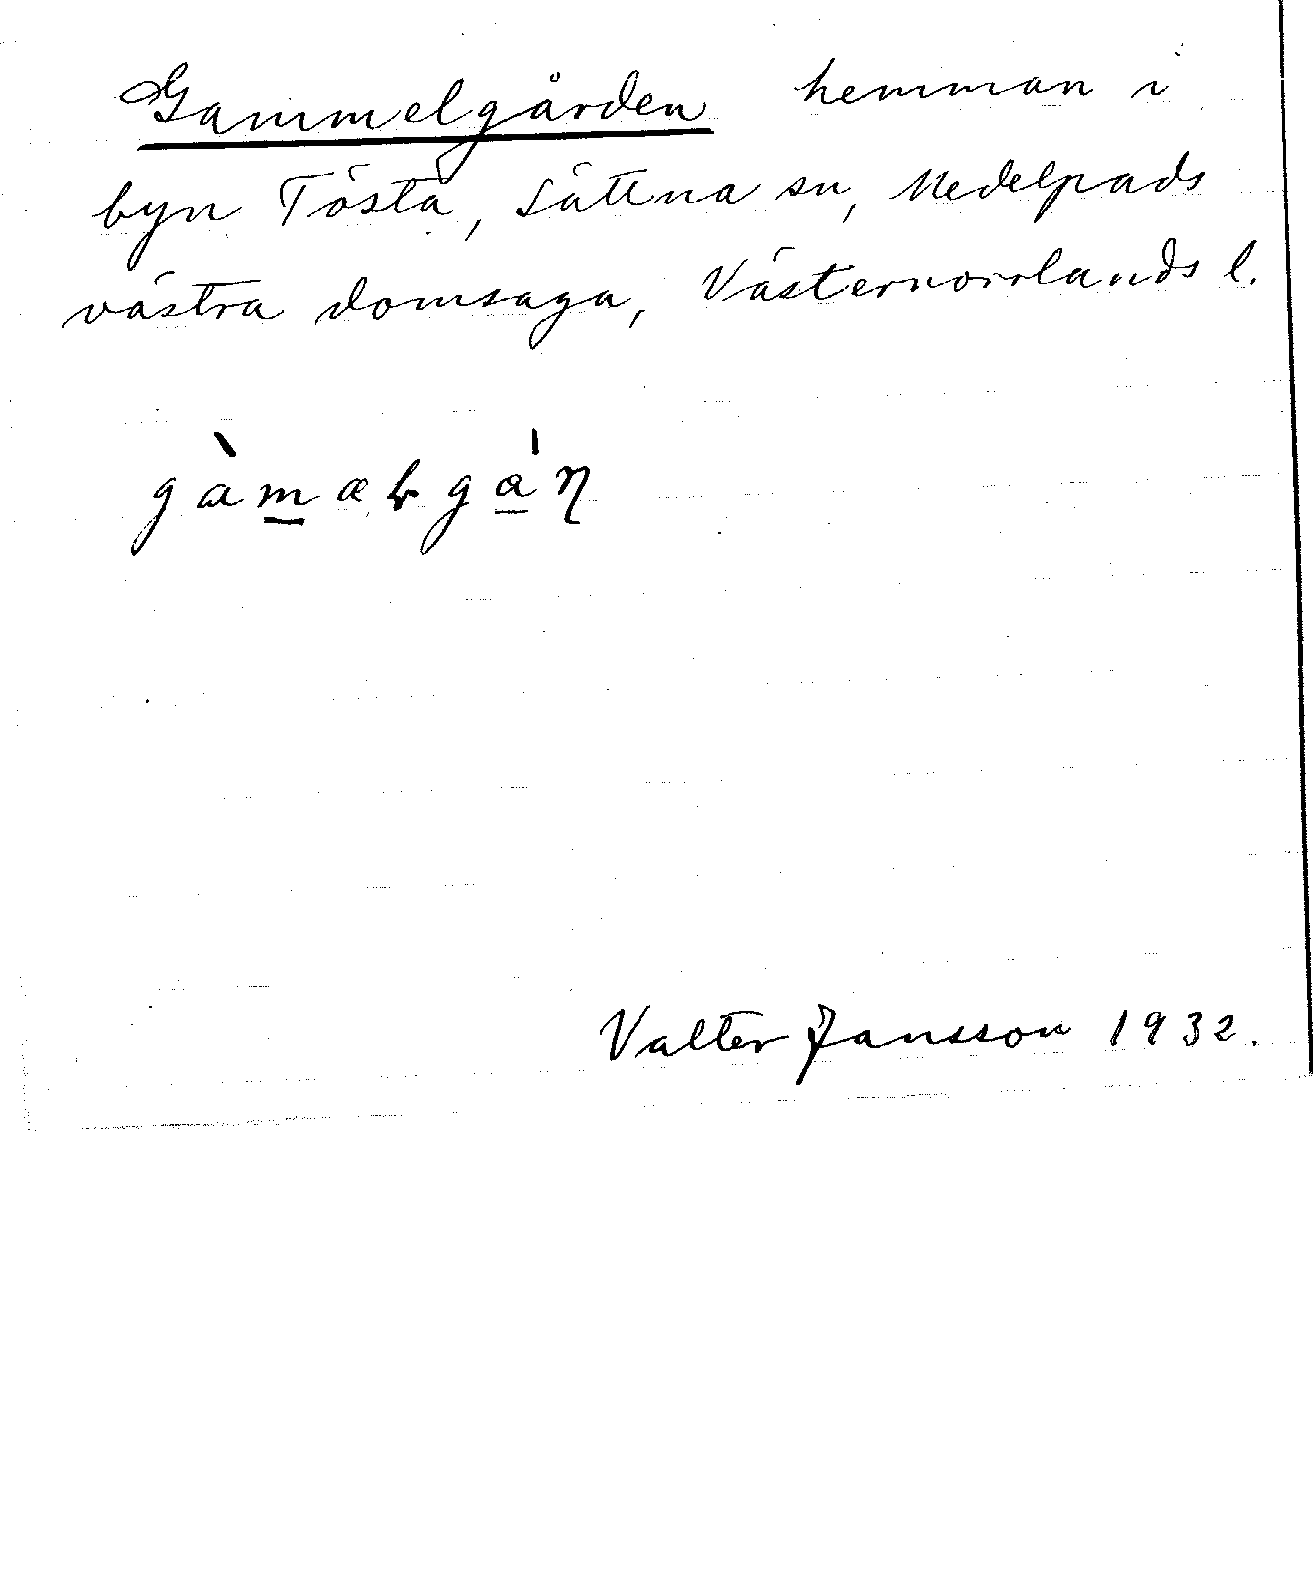 Gammelgården hemman i
byn Tösta, Sättna sn, Medelpads
västra domsaga, Västernorrlands l.
Valter Jansson 1932.